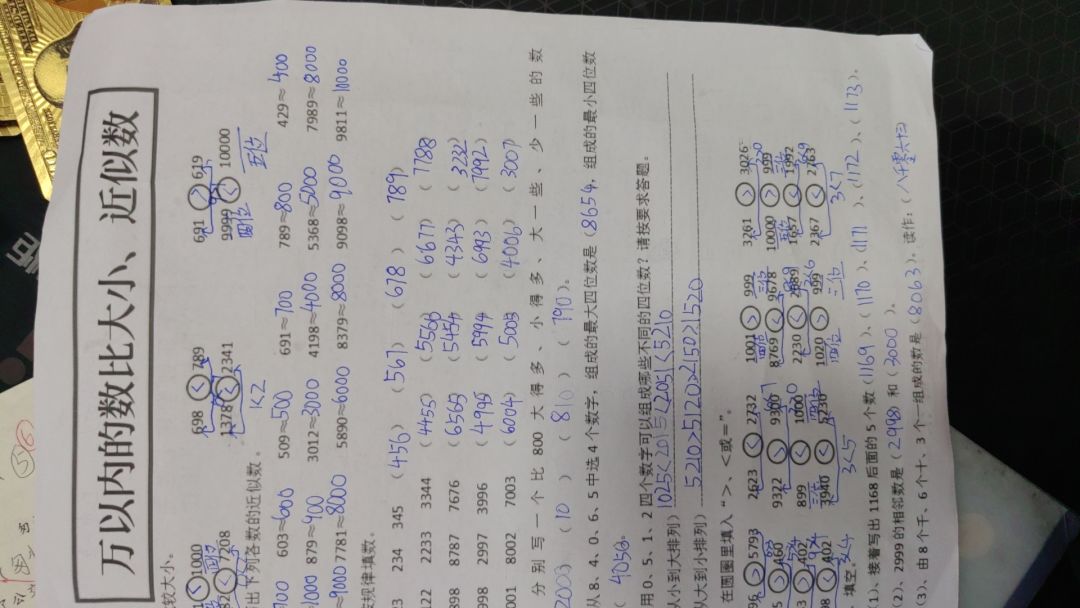 万以内的数比大小、近似数
较大小。
1000 698<789 691>619
7208 1378<2341 9999<10000
两 1<2 四位 五位
出下列各数的近似数。
700 603≈600 509≈500 691≈700 789≈800 429≈400
1000 879≈900 3012≈3000 4198≈4000 5368≈5000 7989≈8000
≈9000 7781≈8000 5890≈6000 8379≈8000 9098≈9000 9811≈10000
按规律填数。
234 345 (456) (567) (678) (789)
122 2233 3344 (4455) (5566) (6677) (7788)
898 8787 7676 (6565) (5454) (4343) (3232)
998 2997 3996 (4995) (5994) (6993) (7992)
001 8002 7003 (6004) (5005) (4006) (3007)
分别写一个比 800 大得多、小得多、大一些、少一些的数
2003) (10) (810) (790)。
从 8、4、0、6、5 中选 4 个数字，组成的最大四位数是 (8654, 组成的最小四位数
( 4056。
用 0、5、1、2 四个数字可以组成哪些不同的四位数？请按要求答题。
从小到大排列) 1025<2015<2051<5210
从大到小排列) 5210>5120>2150>1520
在圆圈里填入“>、<或=”。
96>5793 2623<2732 1001>999 3261>3026
460 9322>9300 8769<9678 10000>999
402 899<1000 2230<2989 1657<1992
402 3940<5230 1020>999 2367<2763
3<4 3<5 四位 三位 3<7
填空。
(1)、接着写出 1168 后面的 5 个数 (1169)、(1170)、(1171)、(1172)、(1173)。
(2)、2999 的相邻数是 (2998) 和 (3000)。
(3)、由 8 个千、6 个十、3 个一组成的数是 (8063)。读作: (八千零六十三)